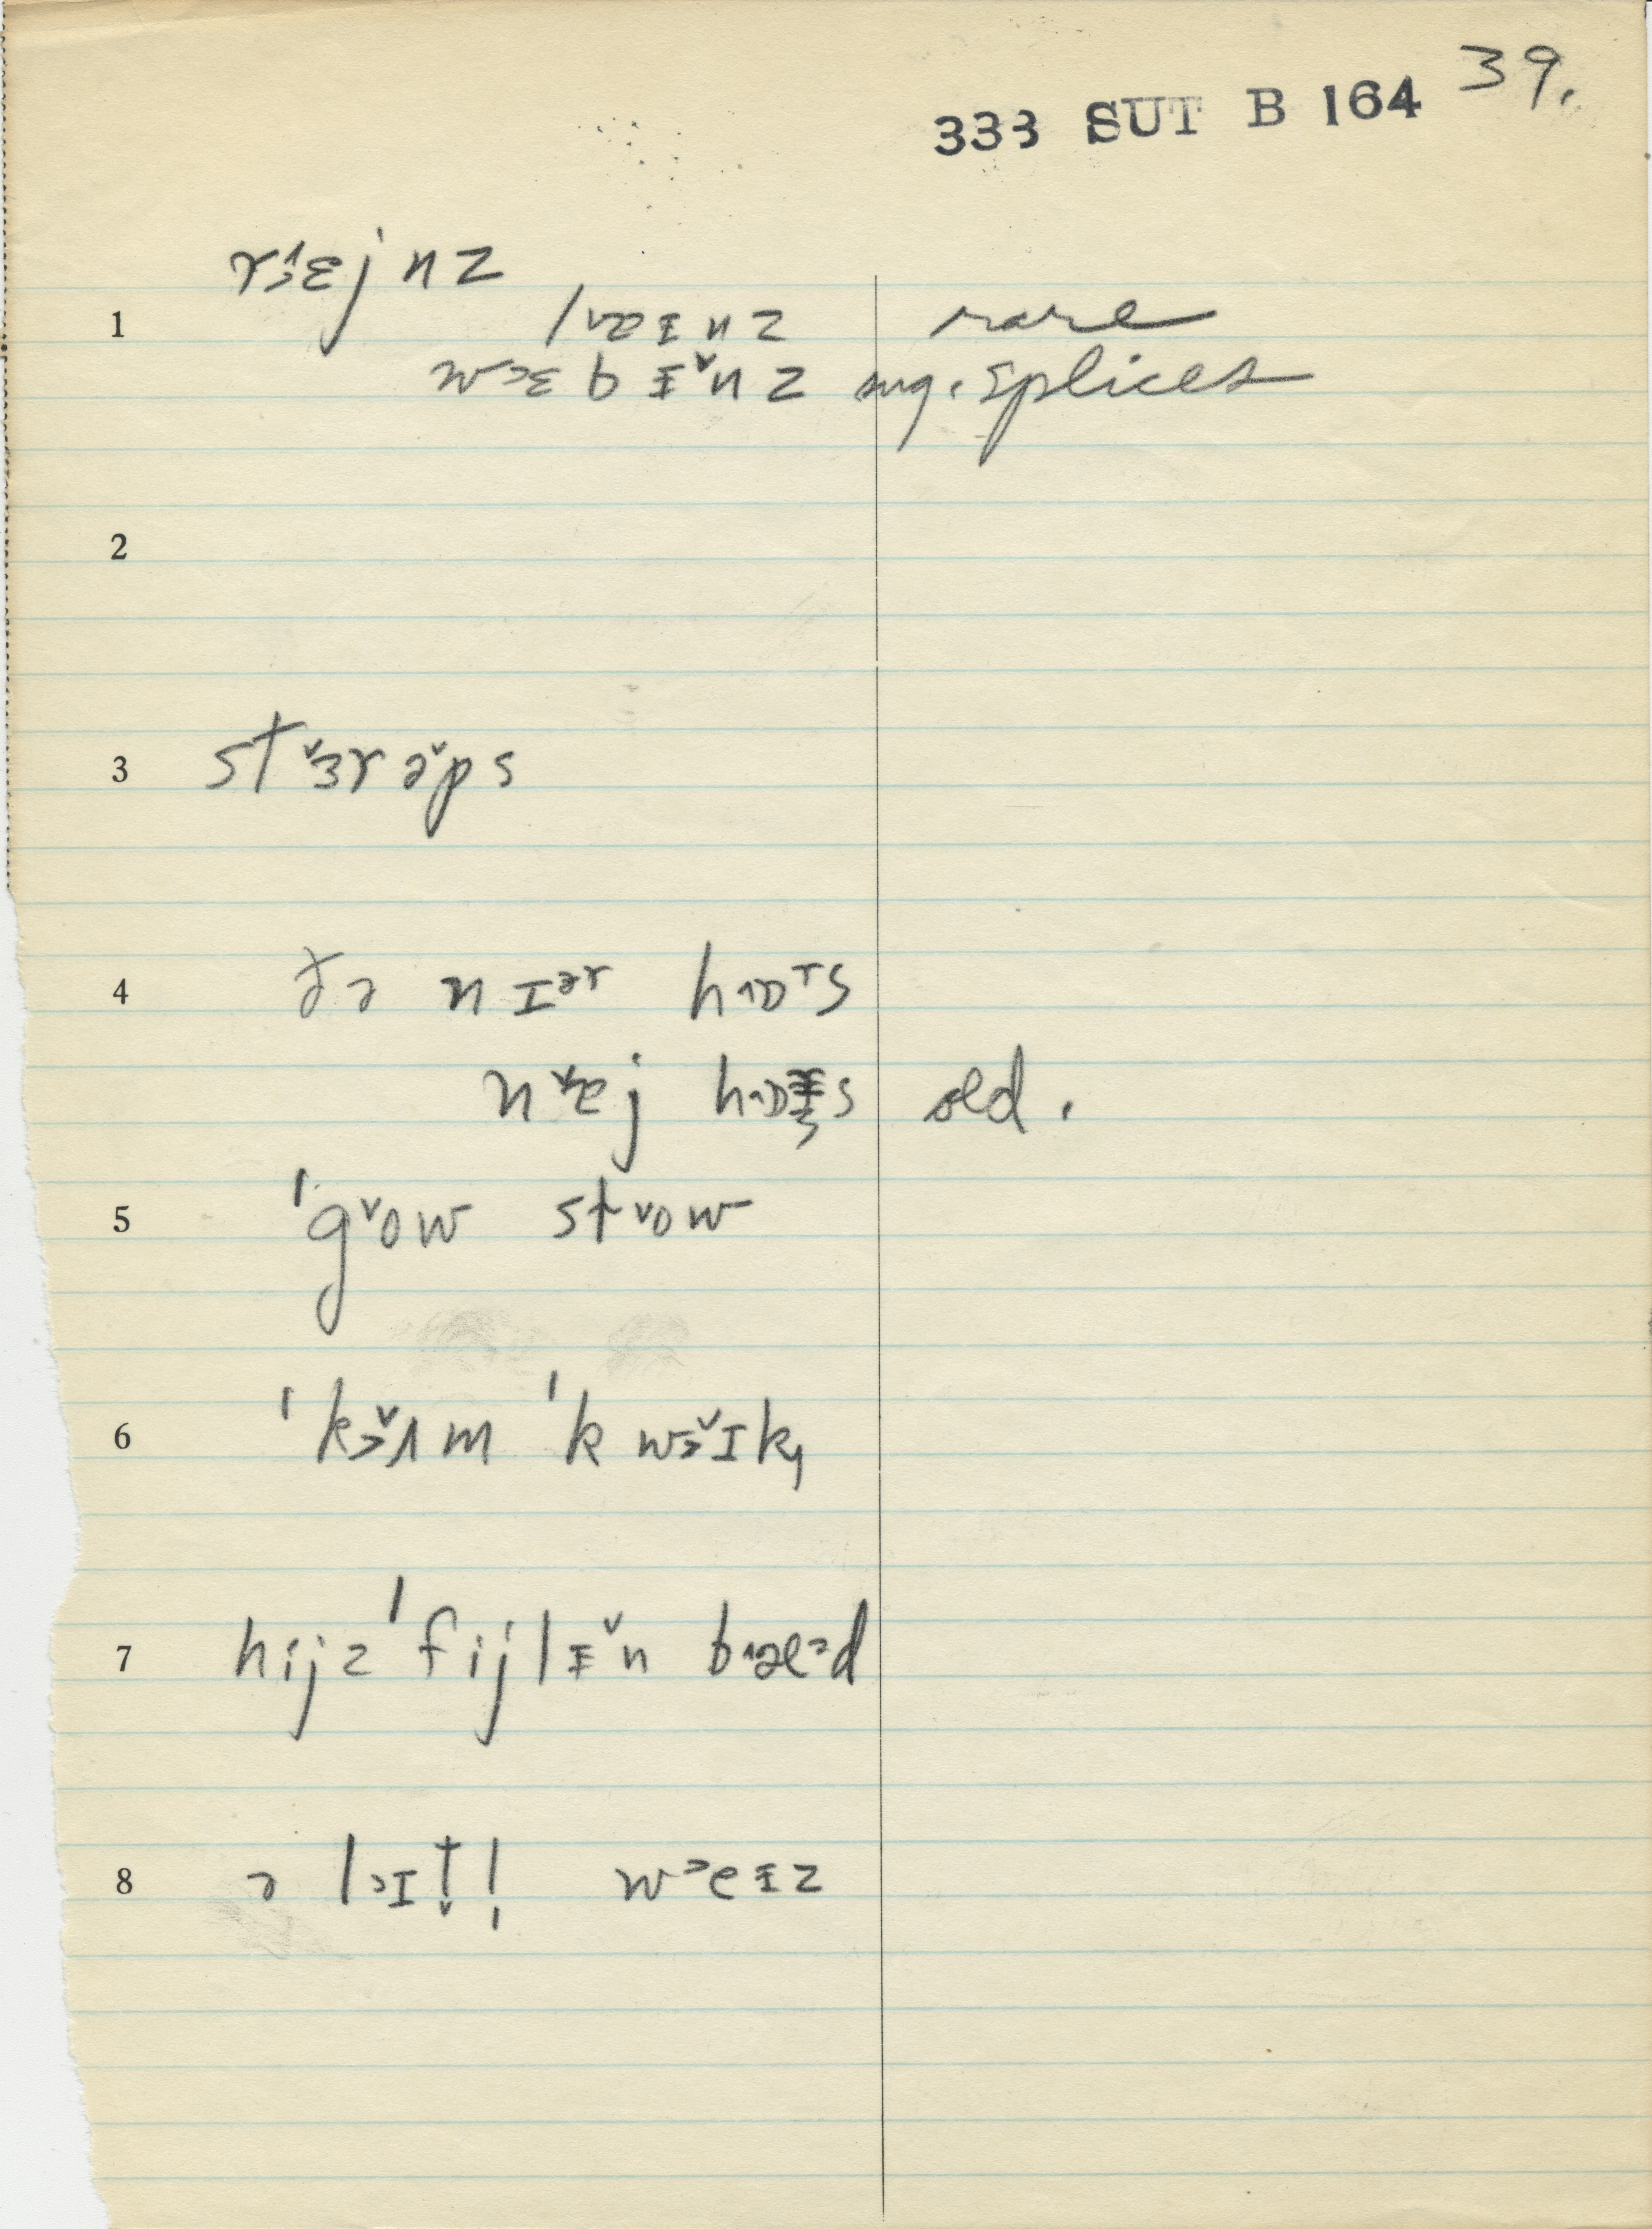 333 SUT B 164 39.
r˃ɛjnz
1 l˅æɪ̵nz rare
w˃ɛbɪ̵̌nz mg. splices
2
3 st˅ɜrə̌ps
4 ðə nɪᵊʳ hɒ˔s
n˅ej hɒs old.
5 ˈg˅ow st˅ow
6 ˈk˃̌ʌm ˈkw˃̌ɪk,
7 hijz ˈfijlɪ̵̌n bæᵊd
8 ə l˃ɪt̬l̩ w˃eɪ̵z